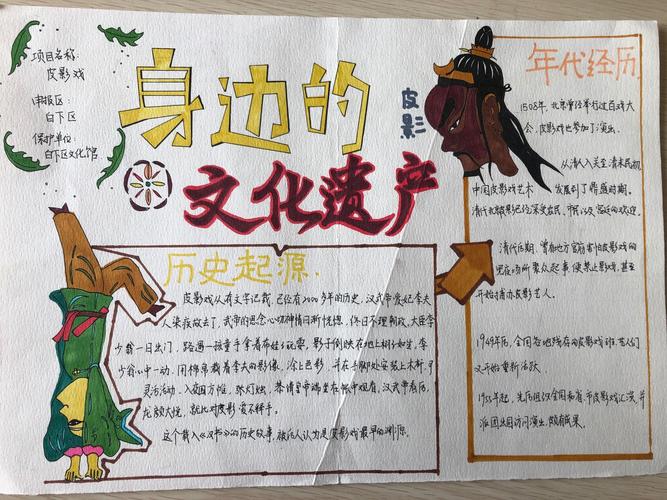 项目名称:
皮影戏
申报区:
白下区
保护单位:
白下区文化馆
身边的
皮影
文化遗产
历史起源.
皮影戏从有文字记载,已经有2000多年的历史,汉武帝爱妃李夫
人染疾故去了,武帝的思念心切神情日渐恍惚,终日不理朝政。大臣李
少翁一日出门,路遇一孩童手拿着布娃娃玩耍,影子倒映在地上栩栩如生,李
少翁心中一动,用棉帛裁着李夫的影像,涂上色彩,并在手脚处安装上木杆,可
灵活活动。入夜围方帷,张灯烛,恭请皇帝端坐在帐中观看,汉武帝看历,
龙颜大悦,就此对皮影爱不释手。
这个载入《汉书》的历史故事,被后人认为是皮影戏最早的渊源。
年代经历
1508年,北京曾经举行过百戏大
会,皮影戏也参加了演出.
从清人入关至清末民初,
中国皮影戏艺术 发展到了鼎盛时期。
清代北京皮影已经深受农民、市民以及宫廷的欢迎.
清代后期,曾有地方官府害怕皮影戏的
黑夜场所聚众起事,便禁止影戏,甚至
开始捕办皮影艺人。
1949年后,全国各地残存的皮影戏班、艺人们
又开始重新活跃.
1955年起,先后组织全国和省、市皮影戏汇演,并
派团出国访问演出,颇有成果。